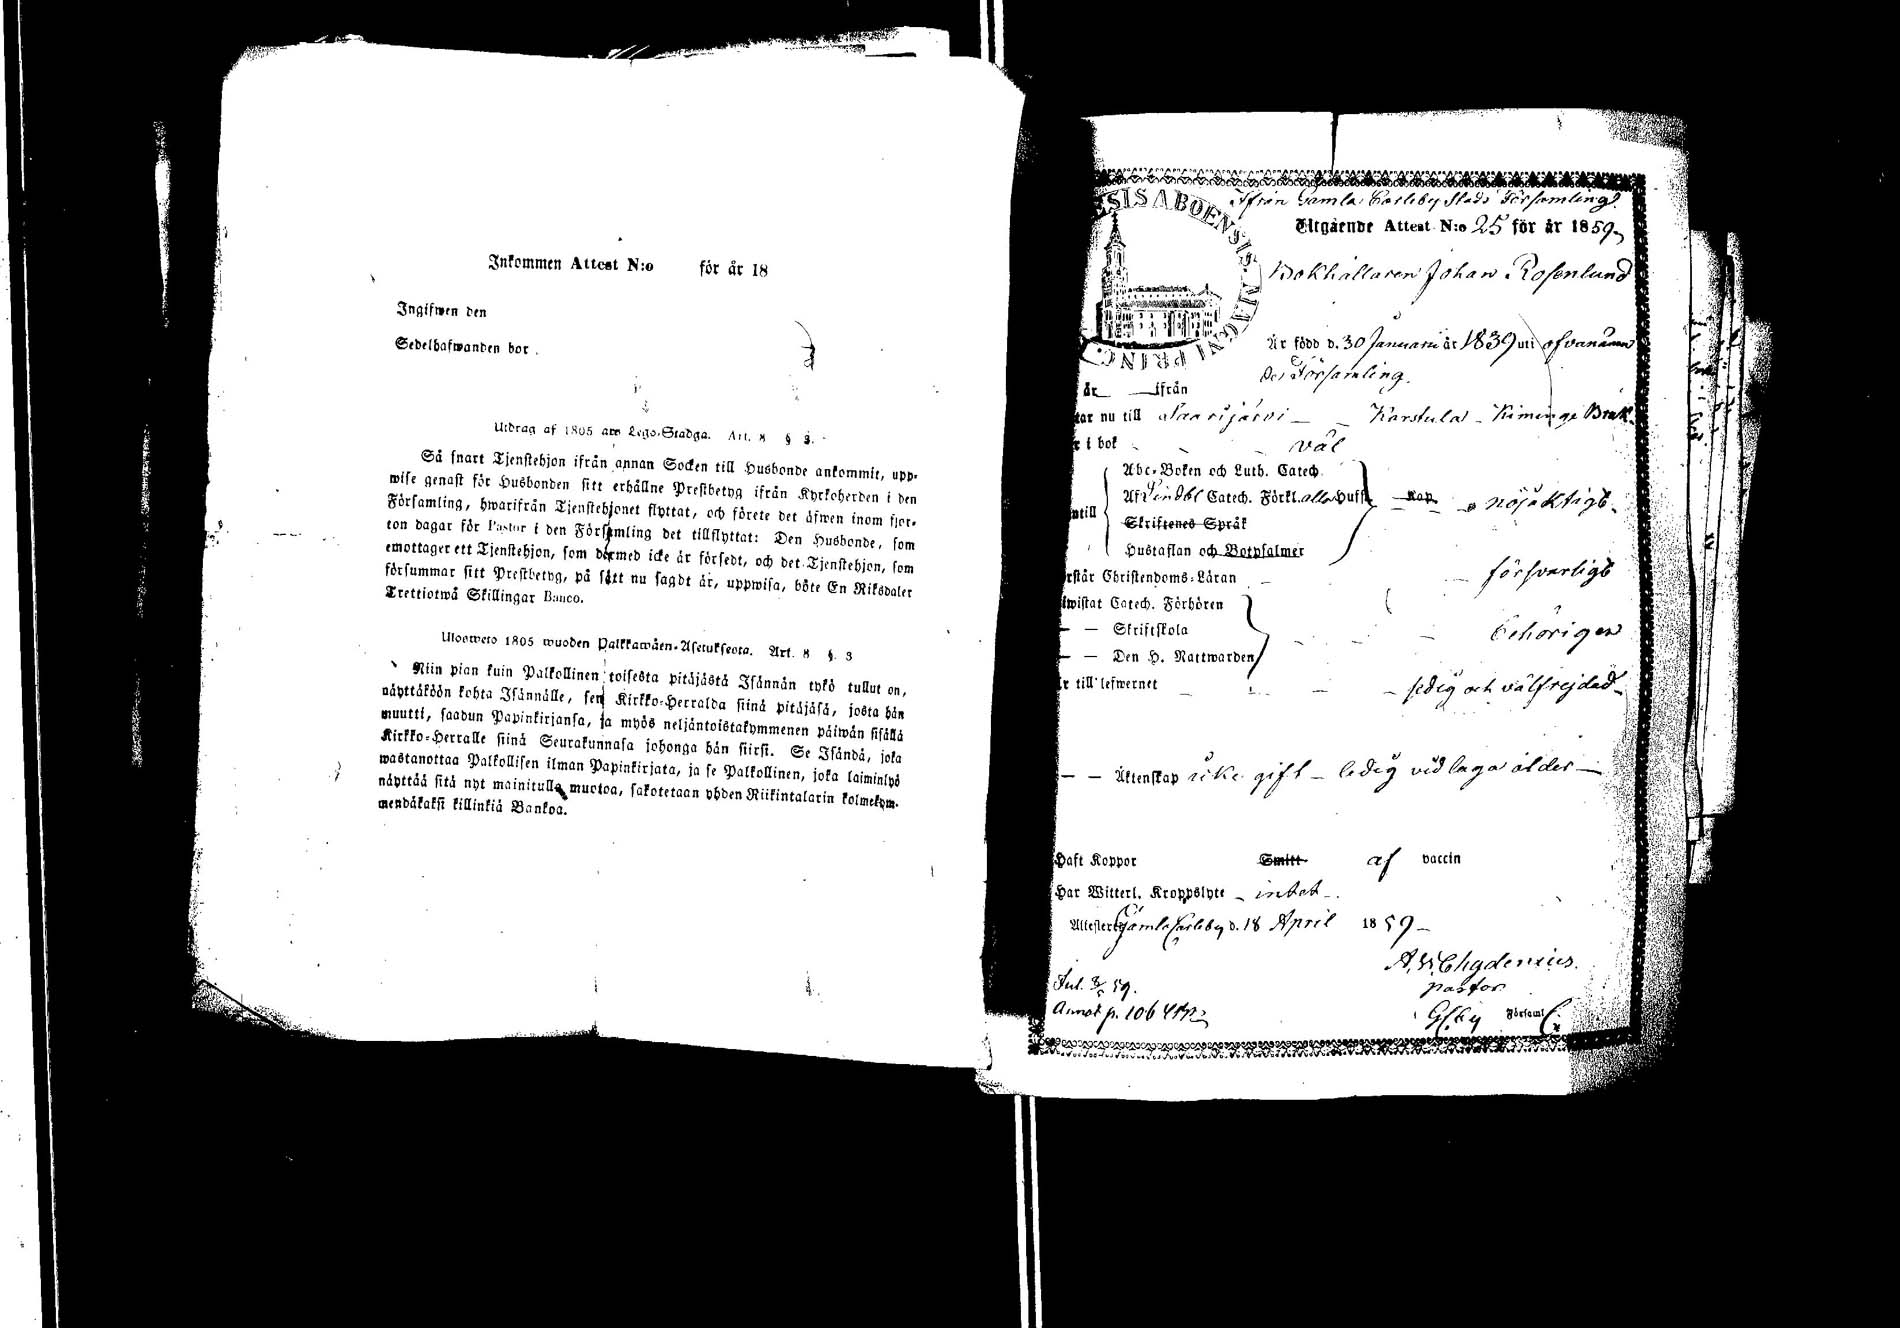 Inkommen Attest N:o för år 18
Ingifwen den
Sedelhafwanden bor
Utdrag af 1805 års Lego-Stadga. Art. 8 § 3.
Så snart Tjenstehjon ifrån annan Socken till Husbonde ankommit, upp-
wise genast för Husbonden sitt erhållne Prestbetyg ifrån Kyrkoherden i den
Församling, hwarifrån Tjenstehjonet flyttat, och förete det äfwen inom fjor-
ton dagar för Pastor i den Församling det tillflyttat: Den Husbonde, som
emottager ett Tjenstehjon, som dermed icke är försedt, och det Tjenstehjon, som
försummar sitt Prestbetyg, på sätt nu sagdt är, uppwisa, böte En Riksdaler
Trettiotwå Skillingar Banco.
Ulosweto 1805 wuoden Palkkawäen-Asetuksesta. Art. 8 §. 3
Niin pian kuin Palkollinen toisesta pitäjästä Isännän tykö tullut on,
näyttäköön kohta Isännälle, sen Kirkko-Herralda siinä pitäjäsä, josta hän
muutti, saadun Papinkirjansa, ja myös neljäntoistakymmenen päiwän sisällä
Kirkko-Herralle siinä Seurakunnasa johonga hän siirsi. Se Isändä, joka
wastanottaa Palkollisen ilman Papinkirjata, ja se Palkollinen, joka laiminlyö
näyttää sitä nyt mainitulla muotoa, sakotetaan yhden Riikintalarin kolmekym-
mendäkaksi killinkiä Bankoa.
ESIS ABOENSIS MAGNI PRINC.
Ifrån Gamla Carleby Stads Församling
Utgående Attest N:o 25 för år 1859
Bokhållaren Johan Rosenlund
Är född d. 30 Januari år 1839 uti ofvannämn
der Församling.
år ifrån
tar nu till Saarijärvi Karstula Kiminge Bruk
r i bok väl
Abc-Boken och Luth. Catech.
ntill Af Sindbl Catech. Förkl. alla Hufst nöjaktigt
Skriftenes Språk
Hustaflan och Botpsalmer
rstår Christendoms-Läran försvarligt
wistat Catech. Förhören
— — Skriftskola behörigen
— — Den H. Nattwarden
r till lefwernet ledig och välfrejdad
— — Äktenskap icke gift – ledig vid laga ålder
Haft Koppor Smitt af vaccin
Har Witterl. Kroppslyte intet
Attesterar Gamla Carleby d. 18 April 1859
A. V. Chydenius.
pastor
Jul. 3/5 59.
Annot p. 106
GCby Församl